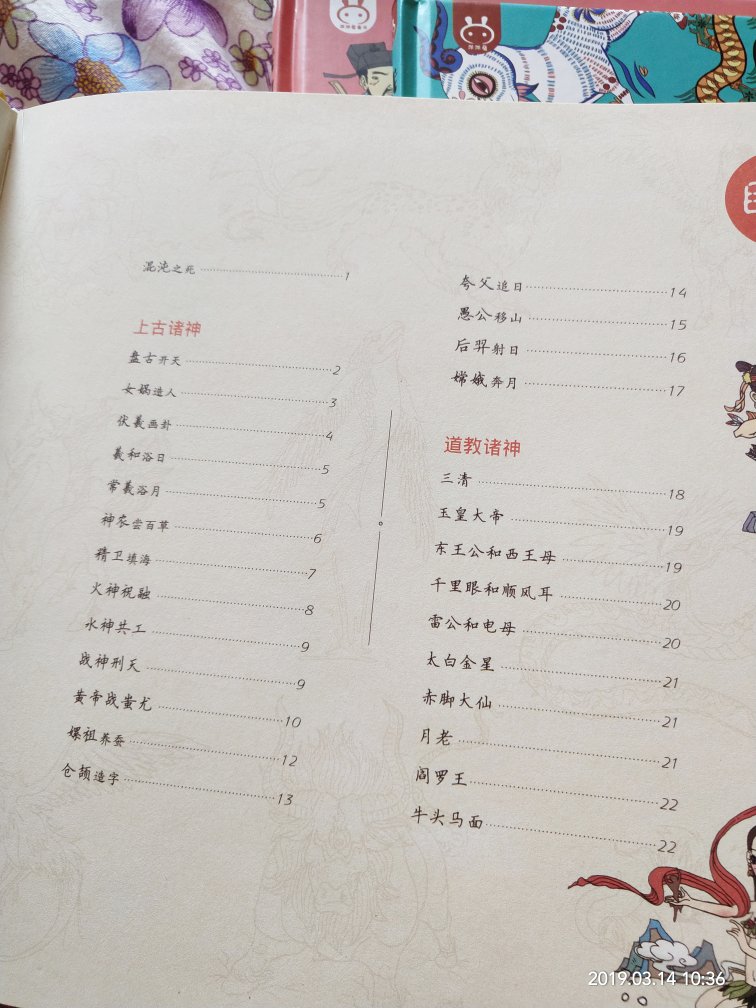 混沌之死 1
上古诸神
盘古开天 2
女娲造人 3
伏羲画卦 4
羲和浴日 5
常羲浴月 5
神农尝百草 6
精卫填海 7
火神祝融 8
水神共工 9
战神刑天 9
黄帝战蚩尤 10
嫘祖养蚕 12
仓颉造字 13
夸父追日 14
愚公移山 15
后羿射日 16
嫦娥奔月 17
道教诸神
三清 18
玉皇大帝 19
东王公和西王母 19
千里眼和顺风耳 20
雷公和电母 20
太白金星 21
赤脚大仙 21
月老 21
阎罗王 22
牛头马面 22
2019.03.14 10:36